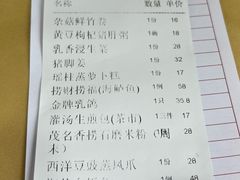 数量 单价
杂菇鲜竹卷 1份 18
黄豆枸杞猪肝粥 1份 28
乳香浸生菜 1份 28
猪脚姜 1份 32
瑶柱蒸萝卜糕 1份
捞财捞福(海鲈鱼) 1例 58
金牌乳鸽 1只 35.8
灌汤生煎包(茶市) 1份
茂名香捞石磨米粉(周末) 1例 28
西洋豆豉蒸凤爪 1份 28